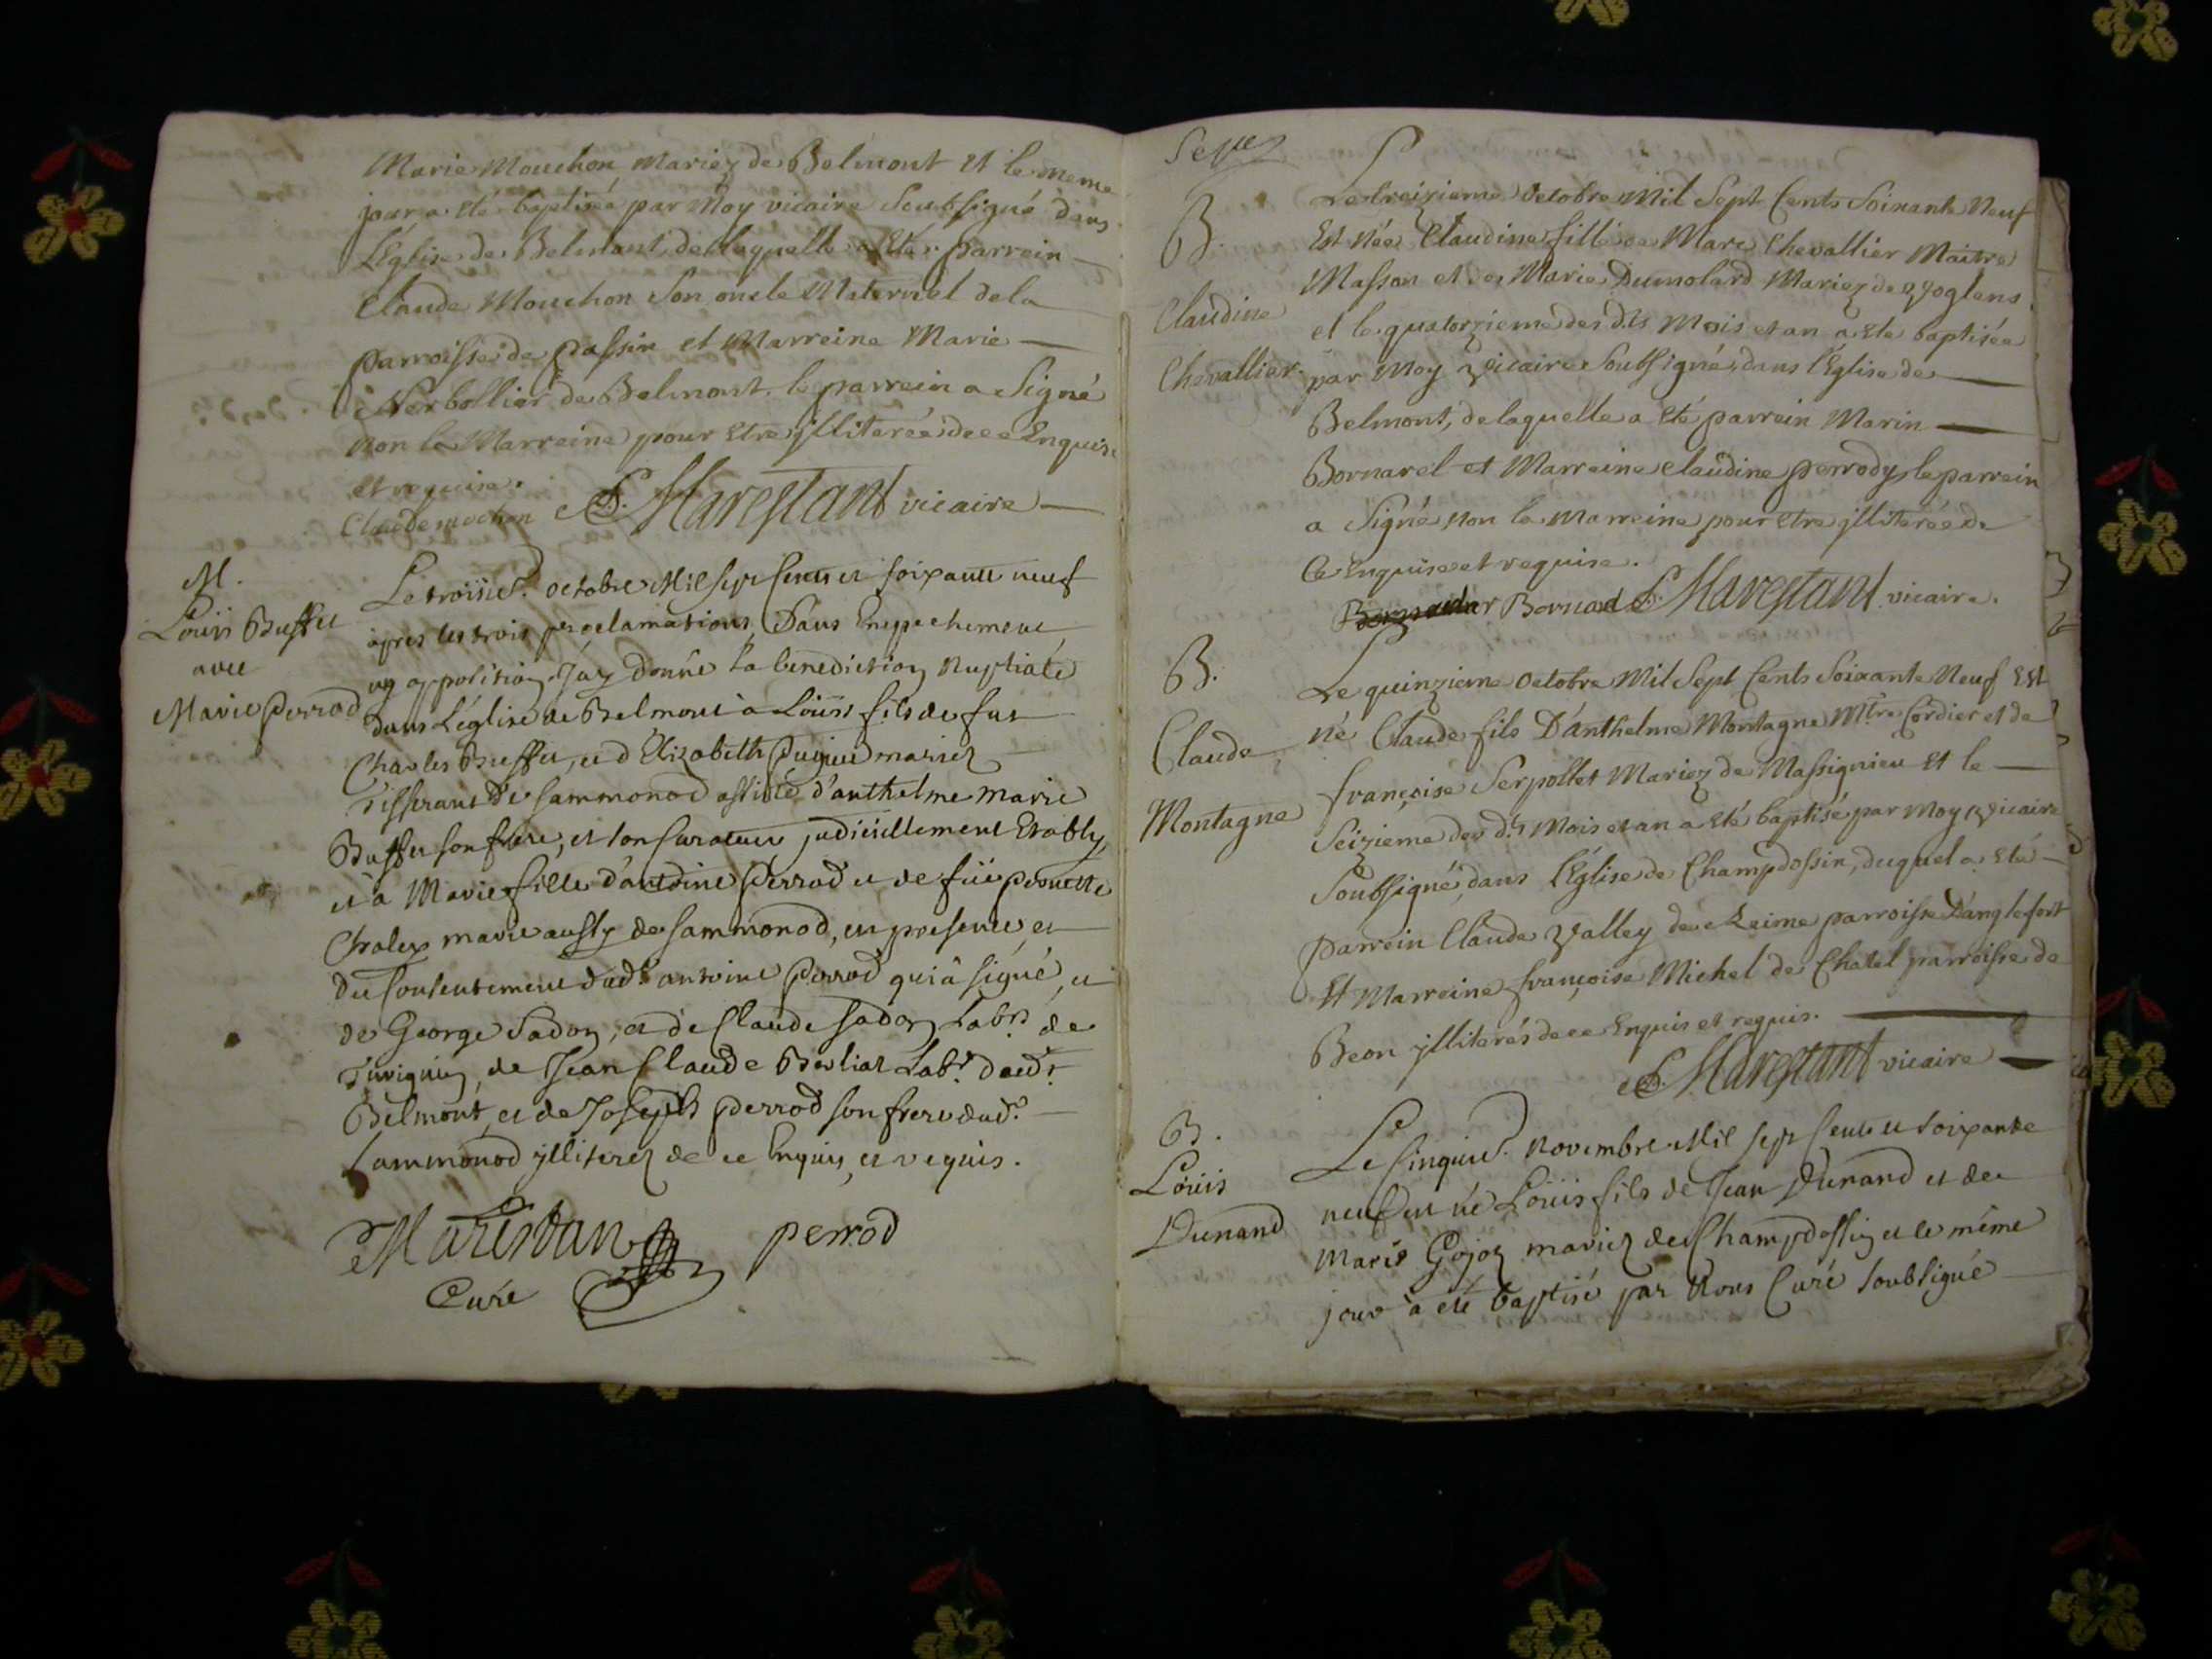 Marie Mouchon Mariez de Belmont Et le meme
jour a Eté baptisée par Moy vicaire Soubsigné dans
L'Eglise de Belmont, de laquelle a Eté parrein
Claude Mouchon Son oncle Maternel de la
parroisse de passin et Marreine Marie
Nerbollier de Belmont. le parrein a Signé
non la Marreine pour Etre jlliterée de ce Enquise
et requise.
Claude mochon Marestant vicaire
M.
Loüis Buffet
avec
Marie Perrod
Le troisie. octobre Mil sept cents et soixante neuf
apres les trois proclamations, Sans Empechement,
ny opposition J'ay donné la benediction Nuptiale
dans L'église de Belmont à Loüis fils de fut
Charles Buffet, et d'Elizabeth mariez
de sammonod assisté d'anthelme marie
Buffet son frere, et son Curateur judiciellement Etably,
et à Marie fille d'antoine Perrod et de füe pernette
Chalex mariez aussy de sammonod, en presence, et
du Consentement dudt. antoine Perrod qui à signé, et
de George Sadon, et de Claude Sadon Labrs. de
de Jean Claude Berliat Labr. dudt.
Belmont, et de Joseph Perrod son frere dudt.
sammonod jlliterez de ce Enquis, et requis.
Marestan perrod
Curé
Sept
B.
Claudine
Chevallier.
Le treizieme Octobre Mil Sept Cents Soixante Neuf
Est Née Claudine fille de Marc Chevallier Maitre
Masson et de Marie Dumolard Mariez de Voglens
et le quatorzieme des dits Mois et an a Eté baptisée
par Moy Vicaire Soubsigné, dans l'Eglise de
Belmont, de laquelle a Eté parrein Marin
Bornarel et Marreine Claudine perrody, le parrein
a Signé non la Marreine pour Etre jlliterée de
Ce Enquise et requise.
Bornard Marestant vicaire.
B.
Claude
Montagne
Le quinzieme Octobre Mil Sept Cents Soixante Neuf Est
né Claude fils D'anthelme Montagne Mtre Cordier et de
françoise Serpollet Mariez de Massignieu Et le
Seizieme des dts Mois et an a Eté baptisé par Moy Vicaire
Soubsigné, dans l'Eglise de Champdossin, duquel a Eté
parrein Claude Valley de Reime parroisse D'anglefort
Et Marreine françoise Michel de Chatel parroisse de
Beon jlliterés de ce Enquis et requis.
Marestant vicaire
B.
Loüis
Dunand
Le Cinquie. Novembre Mil sept cents et soixante
neuf est né Loüis fils de Jean Dunand et de
Marie Gojoz mariez de Champdossin et le même
jour a eté baptisé par Nous Curé soubsigné